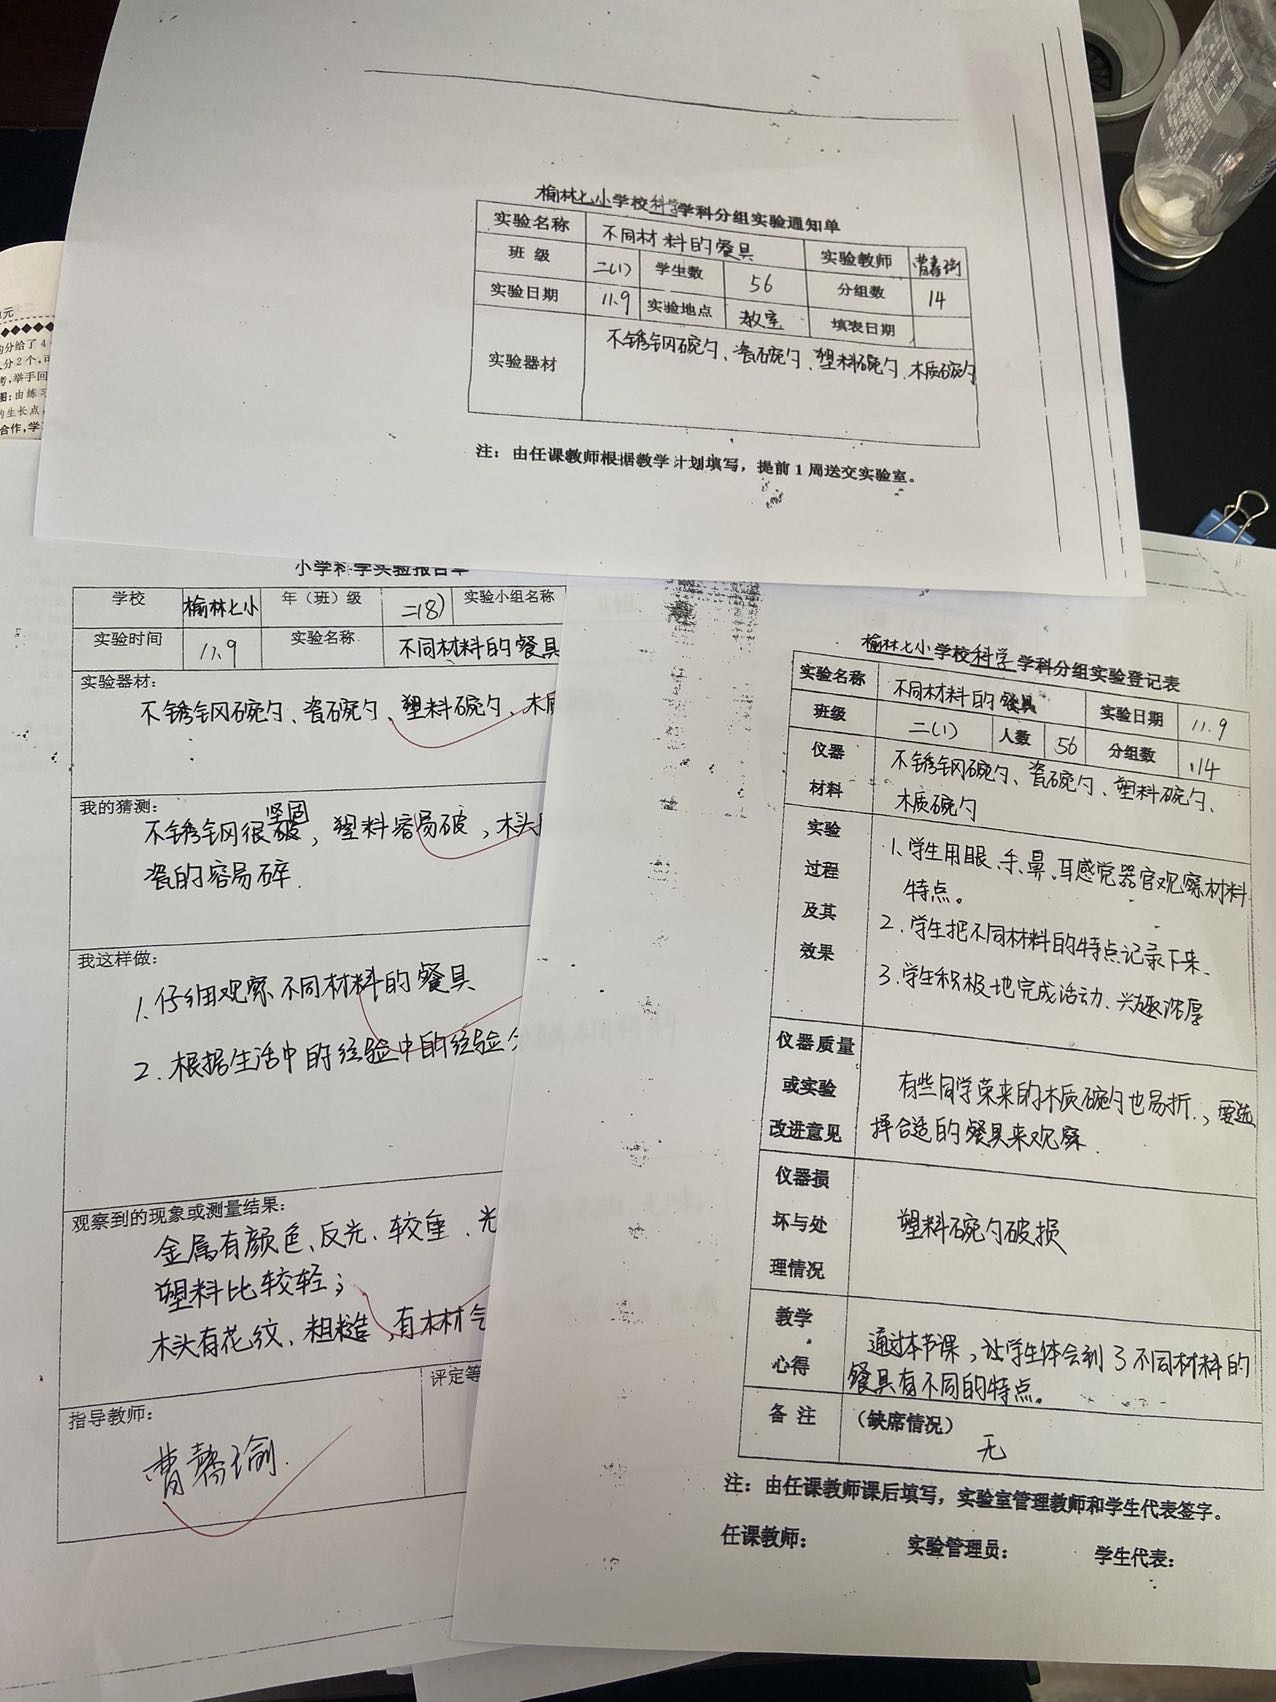 榆林七小学校科学学科分组实验通知单
实验名称 不同材料的餐具 实验教师
班级 二(1) 学生数 56 分组数 14
实验日期 11.9 实验地点 教室 填表日期
实验器材 不锈钢碗勺、瓷碗勺、塑料碗勺、木质碗勺
注：由任课教师根据教学计划填写，提前1周送交实验室。
元
分给了4
分2个,
考,举手回
图:由练习
的生长点,
合作,学
小学科学实验报告单
学校 榆林七小 年（班）级 二(8) 实验小组名称
实验时间 11.9 实验名称 不同材料的餐具
实验器材：
不锈钢碗勺、瓷碗勺、塑料碗勺、木质
我的猜测：
不锈钢很坚固，塑料容易破，木头
瓷的容易碎.
我这样做：
1.仔细观察不同材料的餐具
2.根据生活中的经验中的经验
观察到的现象或测量结果：
金属有颜色、反光、较重、光
塑料比较轻；
木头有花纹、粗糙，有木材气
指导教师： 评定等
曹馨瑜.
榆林七小学校科学学科分组实验登记表
实验名称 不同材料的餐具 实验日期 11.9
班级 二(1) 人数 56 分组数 14
仪器材料 不锈钢碗勺、瓷碗勺、塑料碗勺、
木质碗勺
实验过程及其效果
1.学生用眼、手、鼻、耳感觉器官观察材料
特点。
2.学生把不同材料的特点记录下来.
3.学生积极地完成活动、兴趣浓厚
仪器质量或实验改进意见
有些同学带来的木质碗勺也易折，要选
择合适的餐具来观察.
仪器损坏与处理情况 塑料碗勺破损
教学心得 通过本节课，让学生体会到了不同材料的
餐具有不同的特点。
备注 （缺席情况）
无
注：由任课教师课后填写，实验室管理教师和学生代表签字。
任课教师： 实验管理员： 学生代表：